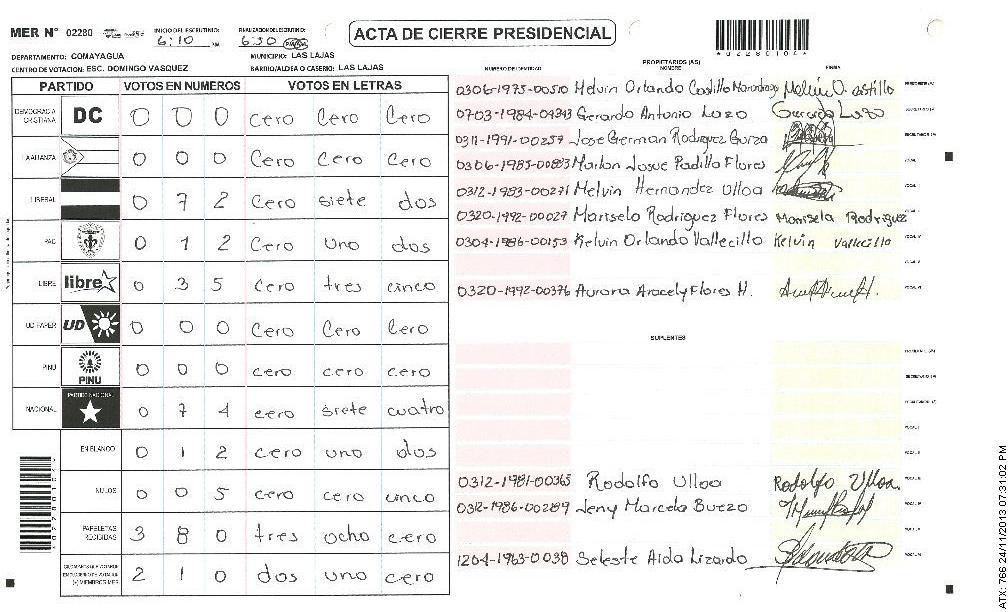 MER Nº 02280
INICIO DEL ESCRUTINIO: 6:10
FINALIZACION ESCRUTINIO: 6:50
ACTA DE CIERRE PRESIDENCIAL
DEPARTAMENTO: COMAYAGUA
MUNICIPIO: LAS LAJAS
CENTRO DE VOTACION: ESC. DOMINGO VASQUEZ
BARRIO/ALDEA O CASERIO: LAS LAJAS
PARTIDO VOTOS EN NUMEROS VOTOS EN LETRAS
DEMOCRACIA CRISTIANA DC 0 0 0 Cero Cero Cero
LA ALIANZA 0 0 0 Cero Cero Cero
LIBERAL 0 7 2 Cero siete dos
PAC 0 1 2 Cero uno dos
LIBRE libre 0 3 5 Cero tres cinco
UD FAPER UD 0 0 0 Cero Cero Cero
PINU PINU 0 0 0 cero cero cero
NACIONAL PARTIDO NACIONAL 0 7 4 cero siete cuatro
EN BLANCO 0 1 2 cero uno dos
NULOS 0 0 5 cero cero cinco
PAPELETAS RECIBIDAS 3 8 0 tres ocho cero
2 1 0 dos uno cero
NUMERO DE IDENTIDAD
PROPIETARIOS (AS)
NOMBRE
FIRMA
0306-1975-00510 Melvin Orlando Castillo
0703-1984-04343 Gerardo Antonio Lazo Gerardo Lazo
0311-1991-00257 Jose German Rodriguez
0306-1985-00883 Marlon Josue Padilla Flores
0312-1983-00271 Melvin Hernandez Ulloa
0320-1992-00027 Marisela Rodriguez Flores Marisela Rodriguez
0304-1986-00153 Kelvin Orlando Vallecillo Kelvin Vallecillo
0320-1992-00376 Aurora Aracely Flores H.
SUPLENTES
0312-1981-00365 Rodolfo Ulloa Rodolfo Ulloa
0312-1986-00289 Leny Marcela Buezo
1204-1963-0038 Seleste Aida Lizardo
*02280104*
ATX: 766 24/11/2013 07:31:02 PM